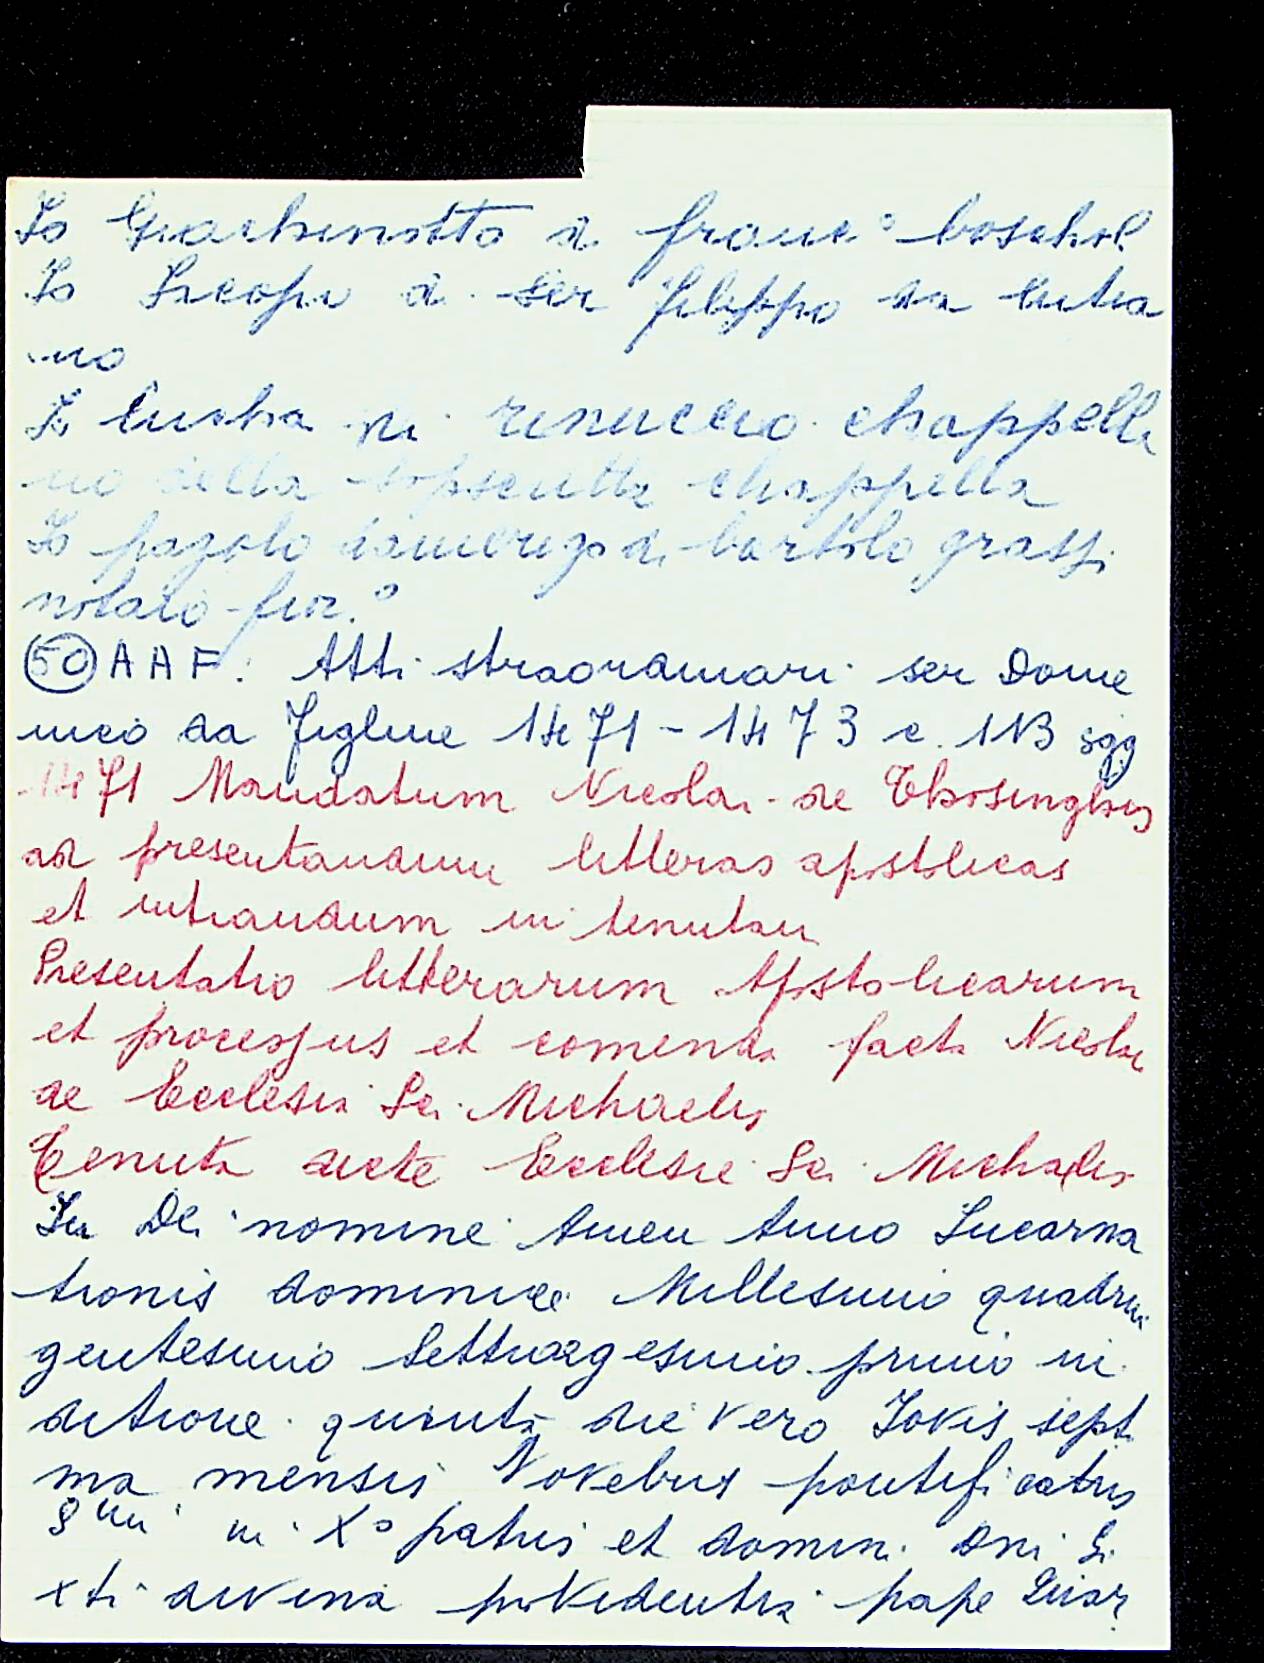 Io Giachinotto di franc° boschol
Io Iacopo di ser filippo da lutia
no
Io lucha di rinuccio chappella
no della sopscritta chappella
Io pagolo damerigo di bartolo grassi
notaio fior.°
50 AAF. Atti straordinari ser Dome
nico da Figline 1471-1473 c. 113 sgg
1471 Mandatum Nicolai de Thosinghis
ad presentandum litteras apostolicas
et intrandum in tenutam
Presentatio litterarum Apostolicarum
et processus et comenda facta Nicolai
de Ecclesia Sci Michaelis
Tenuta dicte Ecclesie Sci Michaelis
In Dei nomine Amen Anno Incarna
tionis dominice Millesimo quadrin
gentesimo Settuagesimo primo in
ditione quinta die vero Jovis septi
ma mensis Novebris pontificatus
Smi in X° patris et domini Dni Si
xti divina providentia pape Quar